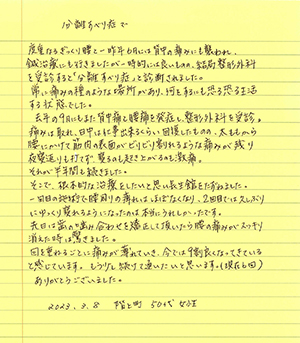 分離すべり症で
度重なるぎっくり腰と一昨年6月には背中の痛みにも襲われ、
鍼治療にも行きましたが一時的には良いものの、結局整形外科
を受診すると「分離すべり症」と診断されました。
常に痛みの種のような場所があり、何をするにも恐る恐る生活
する状態でした。
去年の9月にもまた背中痛と腰痛を発症し、整形外科を受診。
痛みは取れ、日中は仕事出来るくらい回復したものの、太ももから
腰にかけて筋肉の表面がビリビリ割れるような痛みが残り
夜寝返りも打てず、寝るのも起き上がるのも激痛。
それが半年間も続きました。
そこで、根本的な治療をしたいと思い長生館をたずねました。
一回目の施術で腰周りの痛れはほぼなくなり、2回目では久しぶり
にゆっくり寝れるようになったのは本当にうれしかったです。
先日は歯の噛み合わせを矯正して頂いたら腰の痛みがスッキリ
消えた時は驚きました。
回を重ねるごとに痛みが薄れていき、今では9割良くなってきている
と感じています。もう少し続けて通いたいと思います。(現在6回)
ありがとうございました。
2023.3.8 階上町 50代 女性